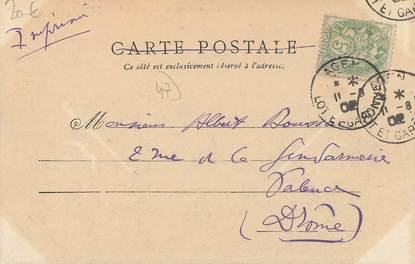 20€
Imprimé
CARTE POSTALE
Ce côté est exclusivement réservé à l'adresse.
5
AGEN
11 - 8
02
LOT ET GARONNE
47
Monsieur Albert
2 Rue de la Gendarmerie
Valence
(Drôme)